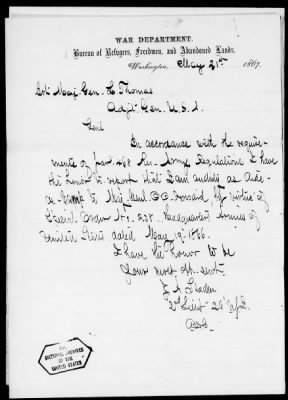 WAR DEPARTMENT.
Bureau of Refugees, Freedmen, and Abandoned Lands.
Washington, May 21st 1867.
Bvt. Maj. Gen. L. Thomas
Adjt. Gen. U.S.A.
Genl
In accordance with the require-
ments of par. 468 Rev. Army Regulations I have
the honor to report that I am on duty as Aide-
de-Camp to Maj. Genl. O.O. Howard by virtue of
Special Orders No. Headquarters Armies of
United States dated May 19th 1866.
I have the honor to be
Your most obt. servt.
2nd Lieut. 26th Inf.
THE
NATIONAL ARCHIVES
OF THE
UNITED STATES